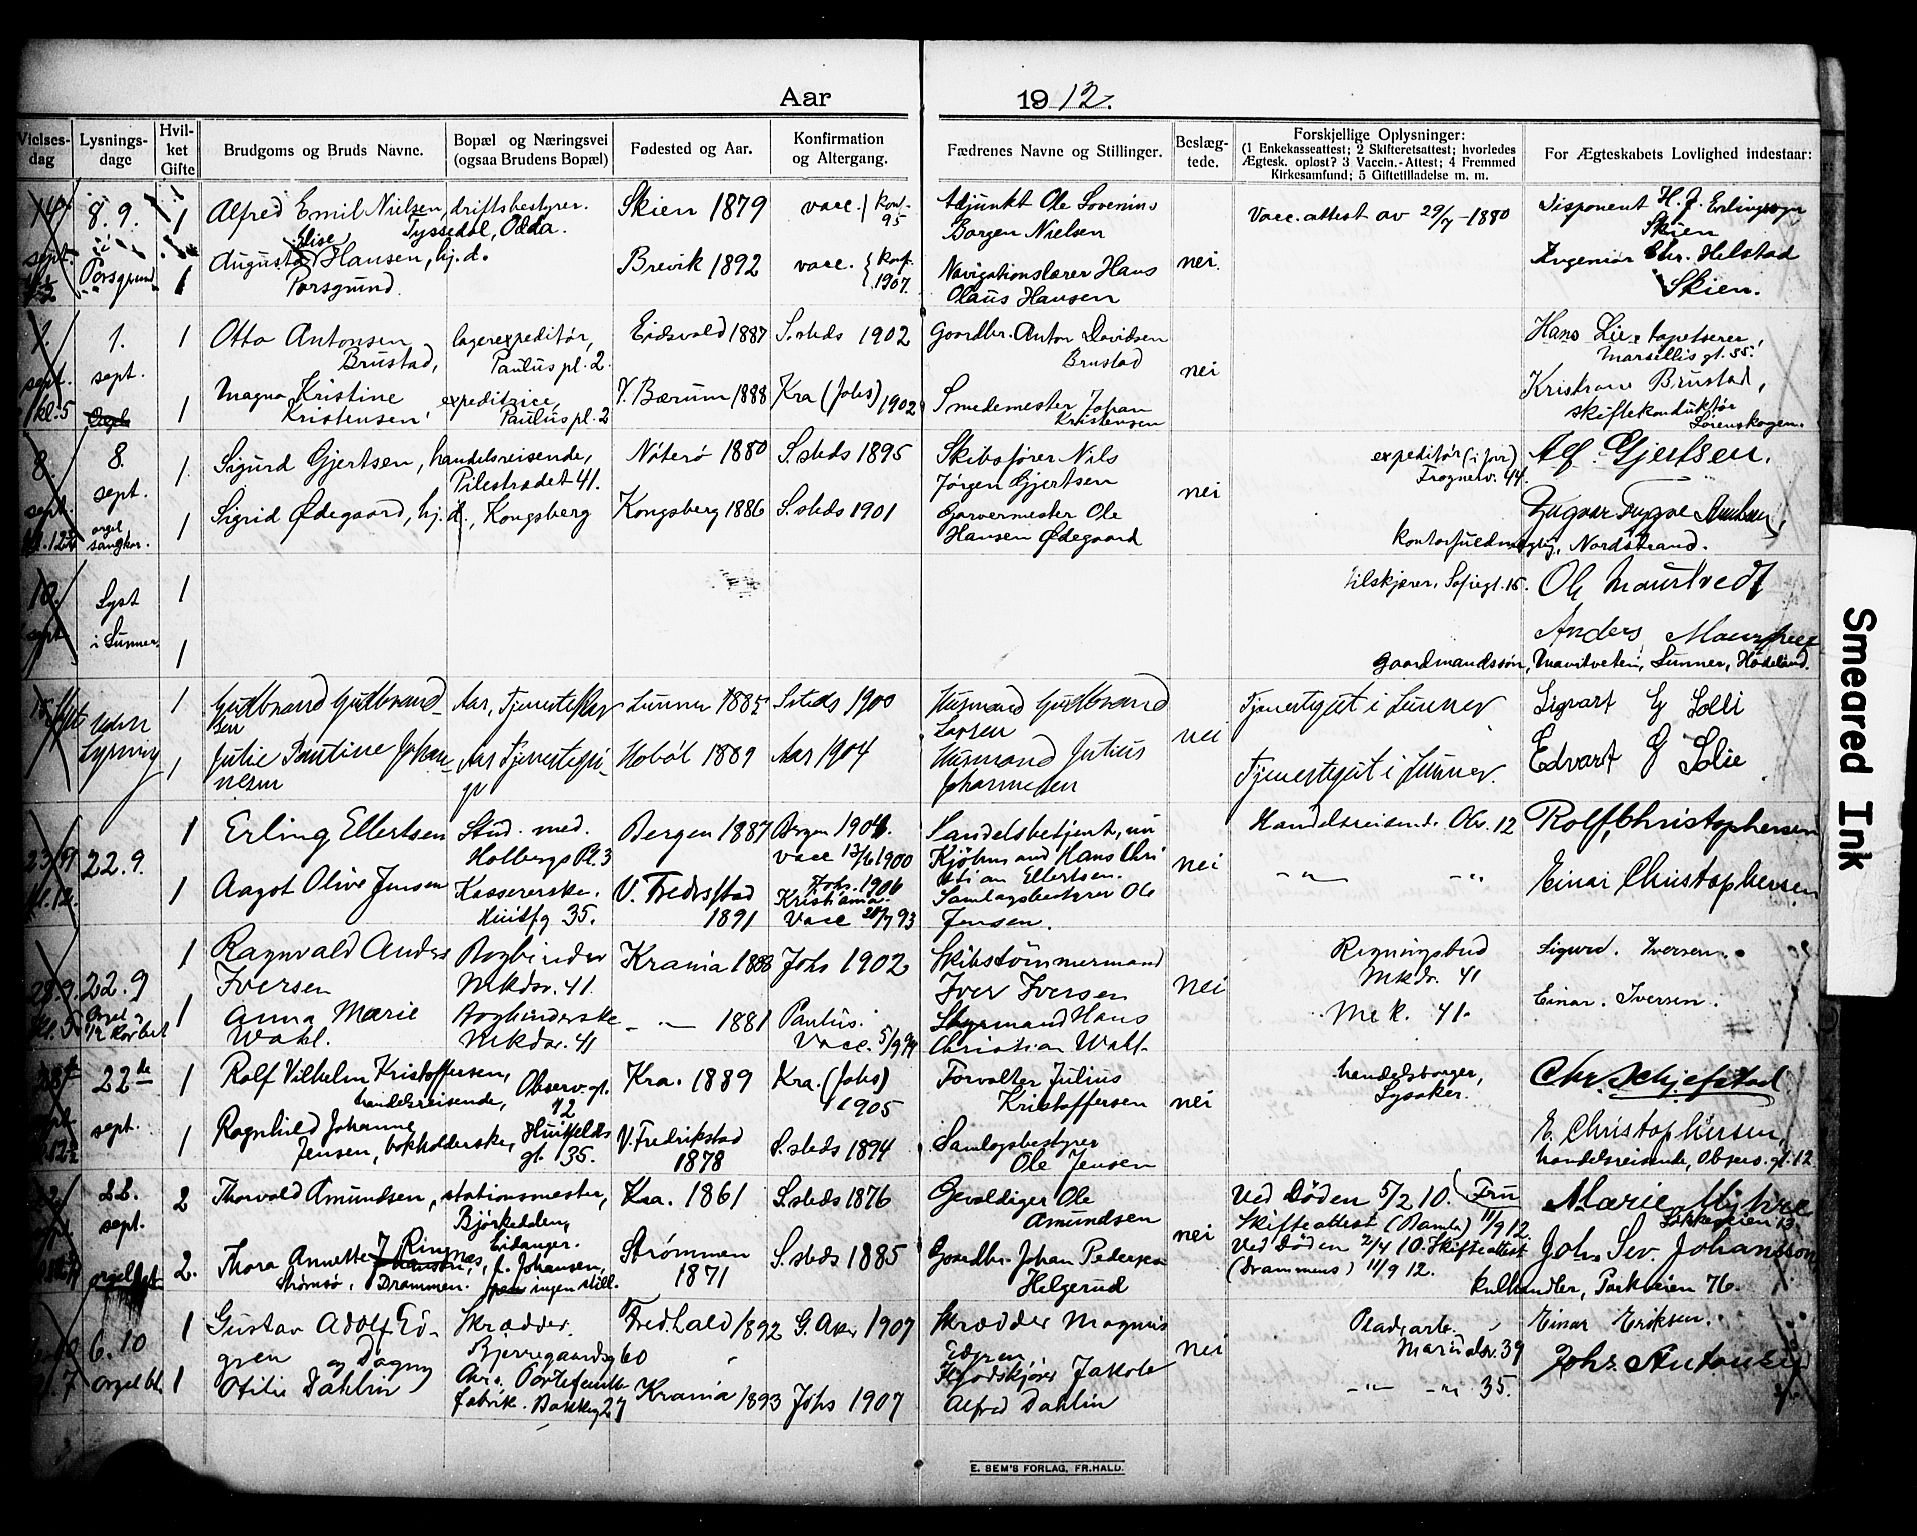 Aar 1912.
Vielses-dag
Lysnings-dage
Hvil-ket Gifte
Brudgoms og Bruds Navne.
Bopæl og Næringsvei (ogsaa Brudens Bopæl)
Fødested og Aar.
Konfirmation og Altergang.
Fædrenes Navne og Stillinger.
Beslæg-tede.
Forskjellige Oplysninger: (1 Enkekasseattest; 2 Skifteretsattest; hvorledes Ægtesk. opløst? 3 Vaccin.-Attest; 4 Fremmed Kirkesamfund; 5 Giftetilladelse m. m.
For Ægteskabets Lovlighed indestaar:
14 sept.
8. 9. i Porsgrund
1
Alfred Emil Nielsen, driftsbestyrer.
Tyssedal, Odda.
Skien 1879
vacc. Konf. 95
Adjunkt Ole Lovenins
Borgen Nielsen
nei.
Vacc. attest av 29/7-1880
Disponent H. J. Erlingsogn
Skien
1
Elise
Augusta Hansen, hj. d.
Porsgrund.
Brevik 1892
vacc. Konf. 1907.
Navigationslærer Hans
Olaus Hansen
Ingeniør Chr. Helstad
Skien.
7. sept. kl. 5
1. sept.
1
Otto Antonsen
Brustad,
lagerexpeditør,
Paulus pl. 2
Eidsvold 1887
S. steds 1902
Gaardbr. Anton Davidsen
Brustad
nei
Hans Lie, tapetserer,
Marsellis gt. 55.
1
Magna Kristine
Kristensen,
expeditrice,
Paulus pl. 2
V. Bærum 1888
Kra (Johs) 1902
Smedemester Johan
Kristensen
Kristian Brustad,
skiftekonduktør
Lørenskogen.
8 sept.
8. sept. orgel sangkor.
1
Sigurd Gjertsen, handelsreisende,
Pilestrædet 41.
Nøterø 1880
S. steds 1895
Skibsfører Nils
Jørgen Gjertsen
nei
expeditør (i fir)
Frognerv. 44.
Alf Gjertsen.
1
Sigrid Ødegaard, hj. d., Kongsberg
Kongsberg 1886
S. steds 1901
Garvermester Ole
Hansen Ødegaard
Yngvar Trygve
kontorfuldmægtig, Nordstrand.
10. sept.
Lyst i Lunner.
1
tilskjærer, Sofiegt. 15.
Ole
1
Anders
gaardmandssøn, Lunner, Hadeland.
15 sept
Uden Lysning
1
Gudbrand Gudbrand-
sen
Aas, Tjenestekar
Lunner 1885
S. steds 1900
Husmand Gudbrand
Larsen
nei
Tjenestegut i Lunner
Sigvart G Solli
1
Julie Pauline Johan-
nesen
Aas Tjenestepi-
ge
Hobøl 1889
Aas 1904
Husmand Julius
Johannesen
Tjenestegut i Lunner.
Edvart G Solie
23/9 kl. 12.
22. 9.
1
Erling Ellertsen
Stud. med.
Holbergs Pl. 3
Bergen 1887
Bergen 1904.
vacc 13/6 1900
Landelsbetjent, nu
Kjøbmand Hans Chri
stian Ellertsen.
nei
Handelsreisend. Obs. 12
Rolf Christophersen
1
Aagot Olive Jensen
Kassererske.
Huitfg 35.
V. Fredrstad
1891
Johs. 1906
Kristiania.
Vacc 28/7 93
Samlagsbestyrer Ole
Jensen.
Einar Christophersen
28. 9. kl. 5
22. 9 Orgel
1
Ragnvald Anders
Iversen
Bogbinder
Mkdsv. 41.
Krania 1888
Johs 1902
Skibstømmermand
Iver Iversen
nei
Regningsbud
Mkdsv. 41
Sigurd. Iversen.
1
Anna Marie
Wahl.
Bogbinderske
Mkdsv. 41
- " - 1881
Paulus.
Vacc. 5/9 94
Styrmand Hans
Christian Wahl.
Mek. 41.
Einar. Iversen.
28de sept. 12½
22de sept.
1
Rolf Vilhelm Kristoffersen,
handelsreisende, Observ. gt. 12
Kra. 1889
Kra. (Johs) 1905
Forvalter Julius
Kristoffersen
nei
handelsborger,
Lysaker.
Chr. Schjefstad
1
Ragnhild Johanne
Jensen, bokholderske, Huitfelds
gt. 35.
V. Fredrikstad
1878
S. steds 1894
Samlagsbestyrer
Ole Jensen
E. Christophersen,
handelsreisende, Observ. gt. 12
22. sept. orgel
2
Thorvald Amundsen, stationsmester,
Bjørkedalen,
Eidanger.
Kra. 1861
S. steds 1876
Gevaldiger Ole
Amundsen
nei
Ved Døden 5/2 10. (Fru
Skifteattest (Bamle) 11/9 12.
Marie Myhre
Bakkeveien 13.
2.
Thora Annette Ringnæs, f. Johansen,
Strømsø, Drammen. ingen still.
Strømmen
1871
S. steds 1885
Gaardbr. Johan Pedersen
Helgerud
Ved Døden 2/4 10. Skifteattest
(Drammens) 11/9 12.
Joh. Sev. Johansson
kulhandler, Parkveien 76.
6. 10 orgel bl.
1
Gustav Adolf Ed-
gren og Dagny
Skrædder.
Bjerregaardsg 60
Fredhald 1892
G. Aker 1907
Skrædder Magnus
Edgren
nei
Pladearb.
Maridalsv. 39
Einar Eriksen.
1
Otilie Dahlin
Arb. Portefeuille
fabrik. Bakkeg 27
Krania 1893
Johs 1907
Kjødskjører Jakob
Alfred Dahlin
- " - - " - 35.
Johs Antonsen
E. SEM'S FORLAG, FR.HALD.
Smeared Ink